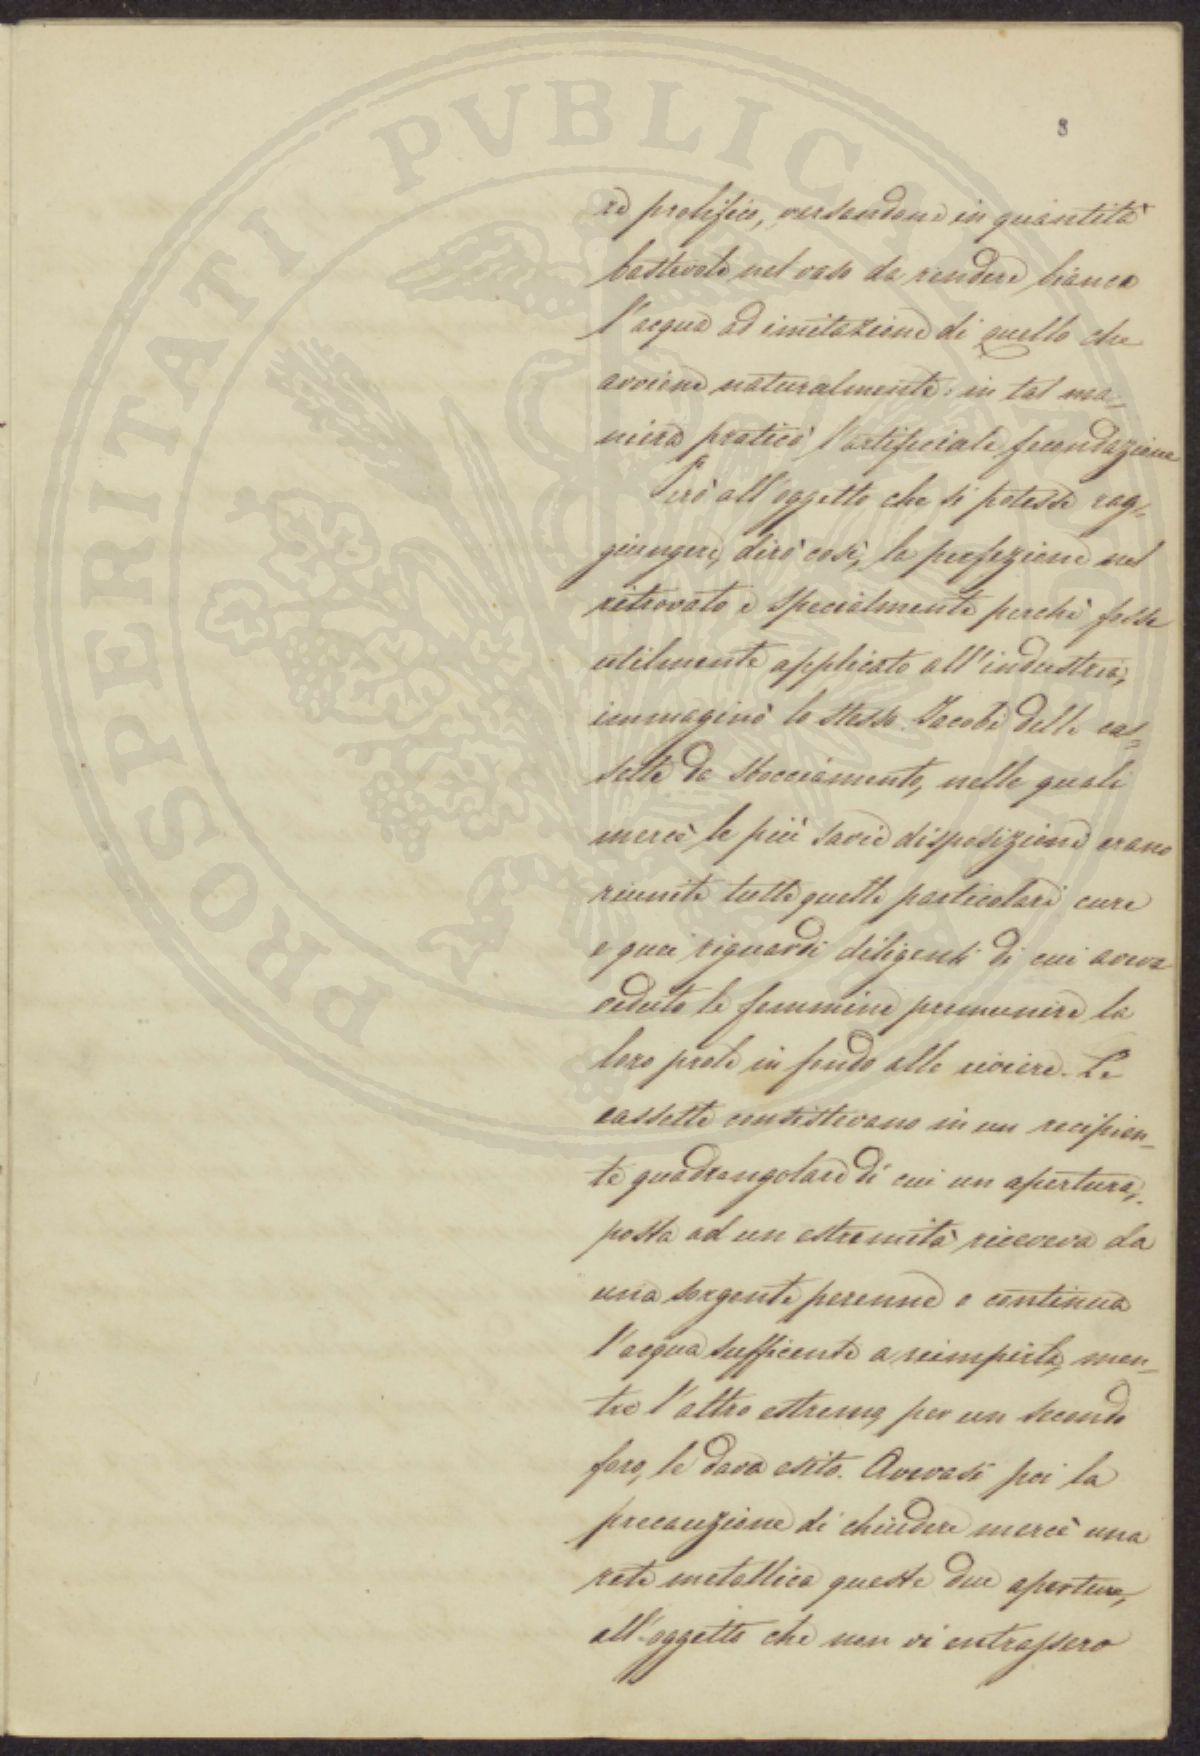 8
re prolifico, versandone in quantità
bastevole nel vaso da rendere bianca
l'acqua ad imitazione di quello che
avviene naturalmente: in tal ma-
niera praticò l'artificiale fecondazione
Però all'oggetto che si potesse rag-
giungere, dirò così, la perfezione nel
ritrovato e specialmente perchè fosse
utilmente applicato all'industria,
immaginò lo stesso Jacobi delle cas-
sette da sbocciamento, nelle quali
mercè le più savie disposizioni erano
riunite tutte quelle particolari cure
e quei riguardi diligenti di cui aveva
veduto le femmine premunire la
loro prole in fondo alle riviere. Le
cassette consistevano in un recipien-
te quadrangolare di cui un apertura,
posta ad un estremità riceveva da
una sorgente perenne e continua
l'acqua sufficente a riempirla, men-
tre l'altro estremo, per un secondo
foro, le dava esito. Avevasi poi la
precauzione di chiudere mercè una
rete metallica queste due aperture,
all'oggetto che non vi entrassero
PROSPERITATI PVBLICAE